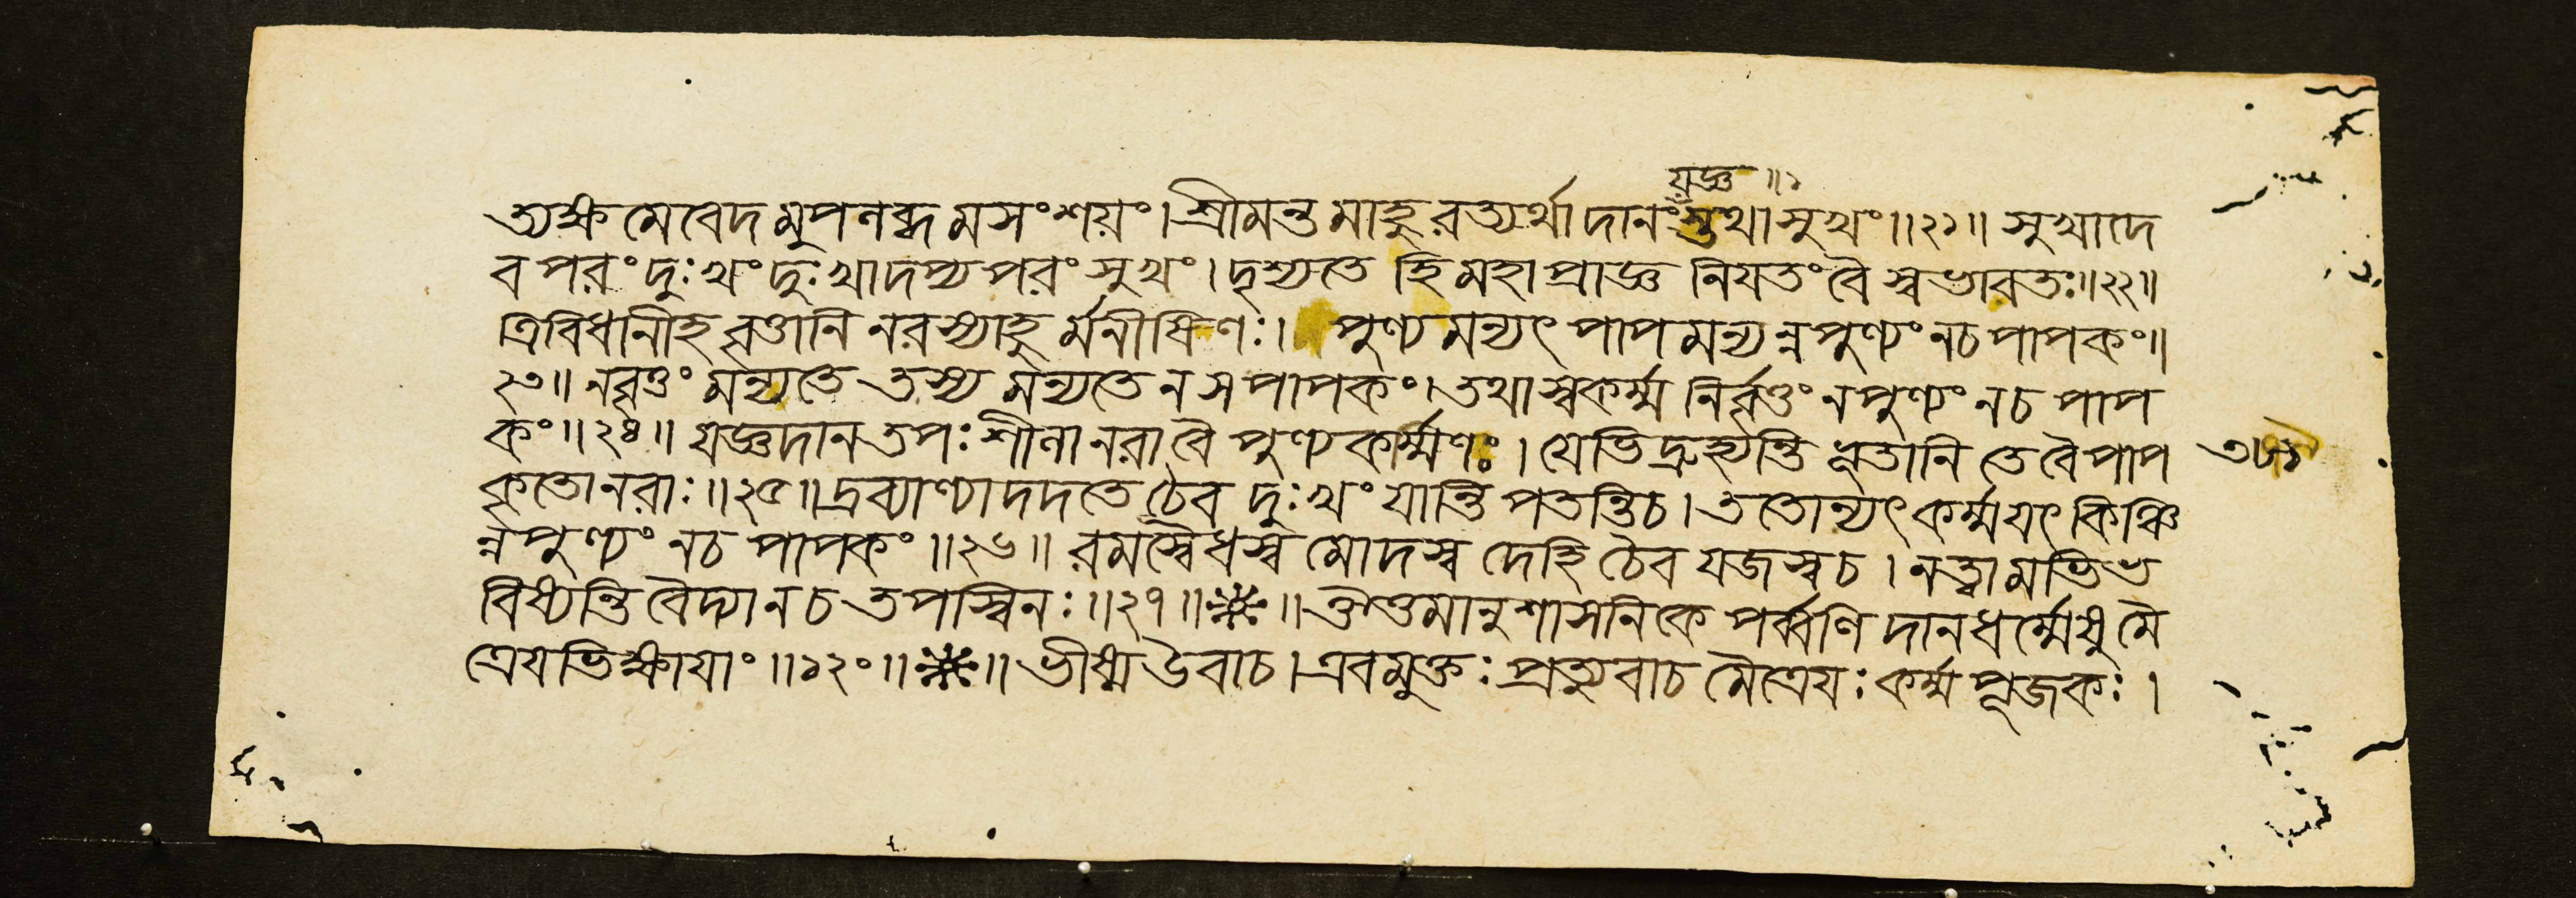 যজ্ঞ ॥১
ত্যক্ষমেবেদমুপনব্ধমসংশয়ং। শ্রীমন্তমাহুরত্যর্থাদানংস্তুথাসুখং॥২১॥ সুখাদে
ব পরং দুঃখং দুঃখাদপ্য পরং সুখং। দৃশ্যতে হি মহাপ্রাজ্ঞ নিযতং বৈ স্বভাবতঃ॥২২॥
ত্রিবিধানীহ বৃত্তানি নরস্যাহুর্মনীষিণঃ। পুণ্যমন্যৎ পাপমন্যন্নপুণ্যং নচ পাপকং॥
২৩॥ নবৃত্তং মন্যতে তস্য মন্যতে ন স পাপকং। তথা স্বকর্ম্ম নির্বৃত্তং ন পুণ্যং ন চ পাপ
কং॥২৪॥ যজ্ঞদানতপঃশীনা নরা বৈ পুণ্যকর্ম্মণঃ। যেভিদ্রুহ্যন্তি ভূতানি তে বৈ পাপ
কৃতোনরাঃ॥২৫॥ দ্রব্যাণ্যাদদতে চৈব দুঃখং যান্তি পতন্তি চ। ততোন্যৎ কর্ম্ম যৎ কিঞ্চি
ন্ন পুণ্যং নচ পাপকং॥২৬॥ রমস্বৈধস্ব মোদস্ব দেহি চৈব যজস্ব চ। নত্বামভিভ
বিষ্যন্তি বৈদ্যা ন চ তপস্বিনঃ॥২৭॥ ॥ ঔত্তমানুশাসনিকে পর্ব্বণি দানধর্ম্মেষু মৈ
ত্রেযভিক্ষাযাং॥১২০॥ ॥ ভীষ্ম উবাচ। এবমুক্তঃ প্রত্যুবাচ মৈত্রেযঃ কর্ম্মপূজকঃ।